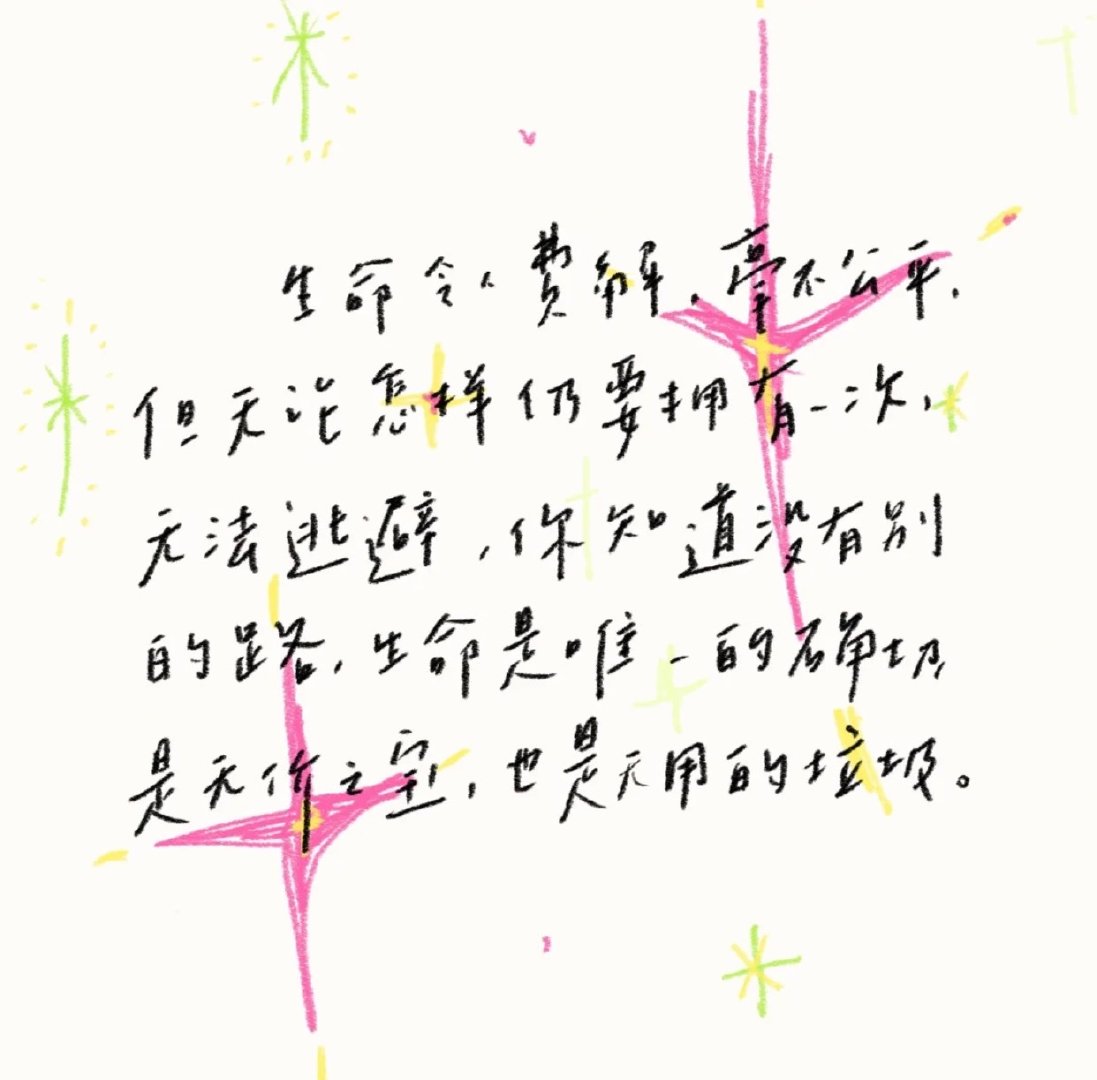 生命令人费解,毫不公平.
但无论怎样仍要拥有一次,
无法逃避,你知道没有别
的路,生命是唯一的确切
是无价之宝,也是无用的垃圾。